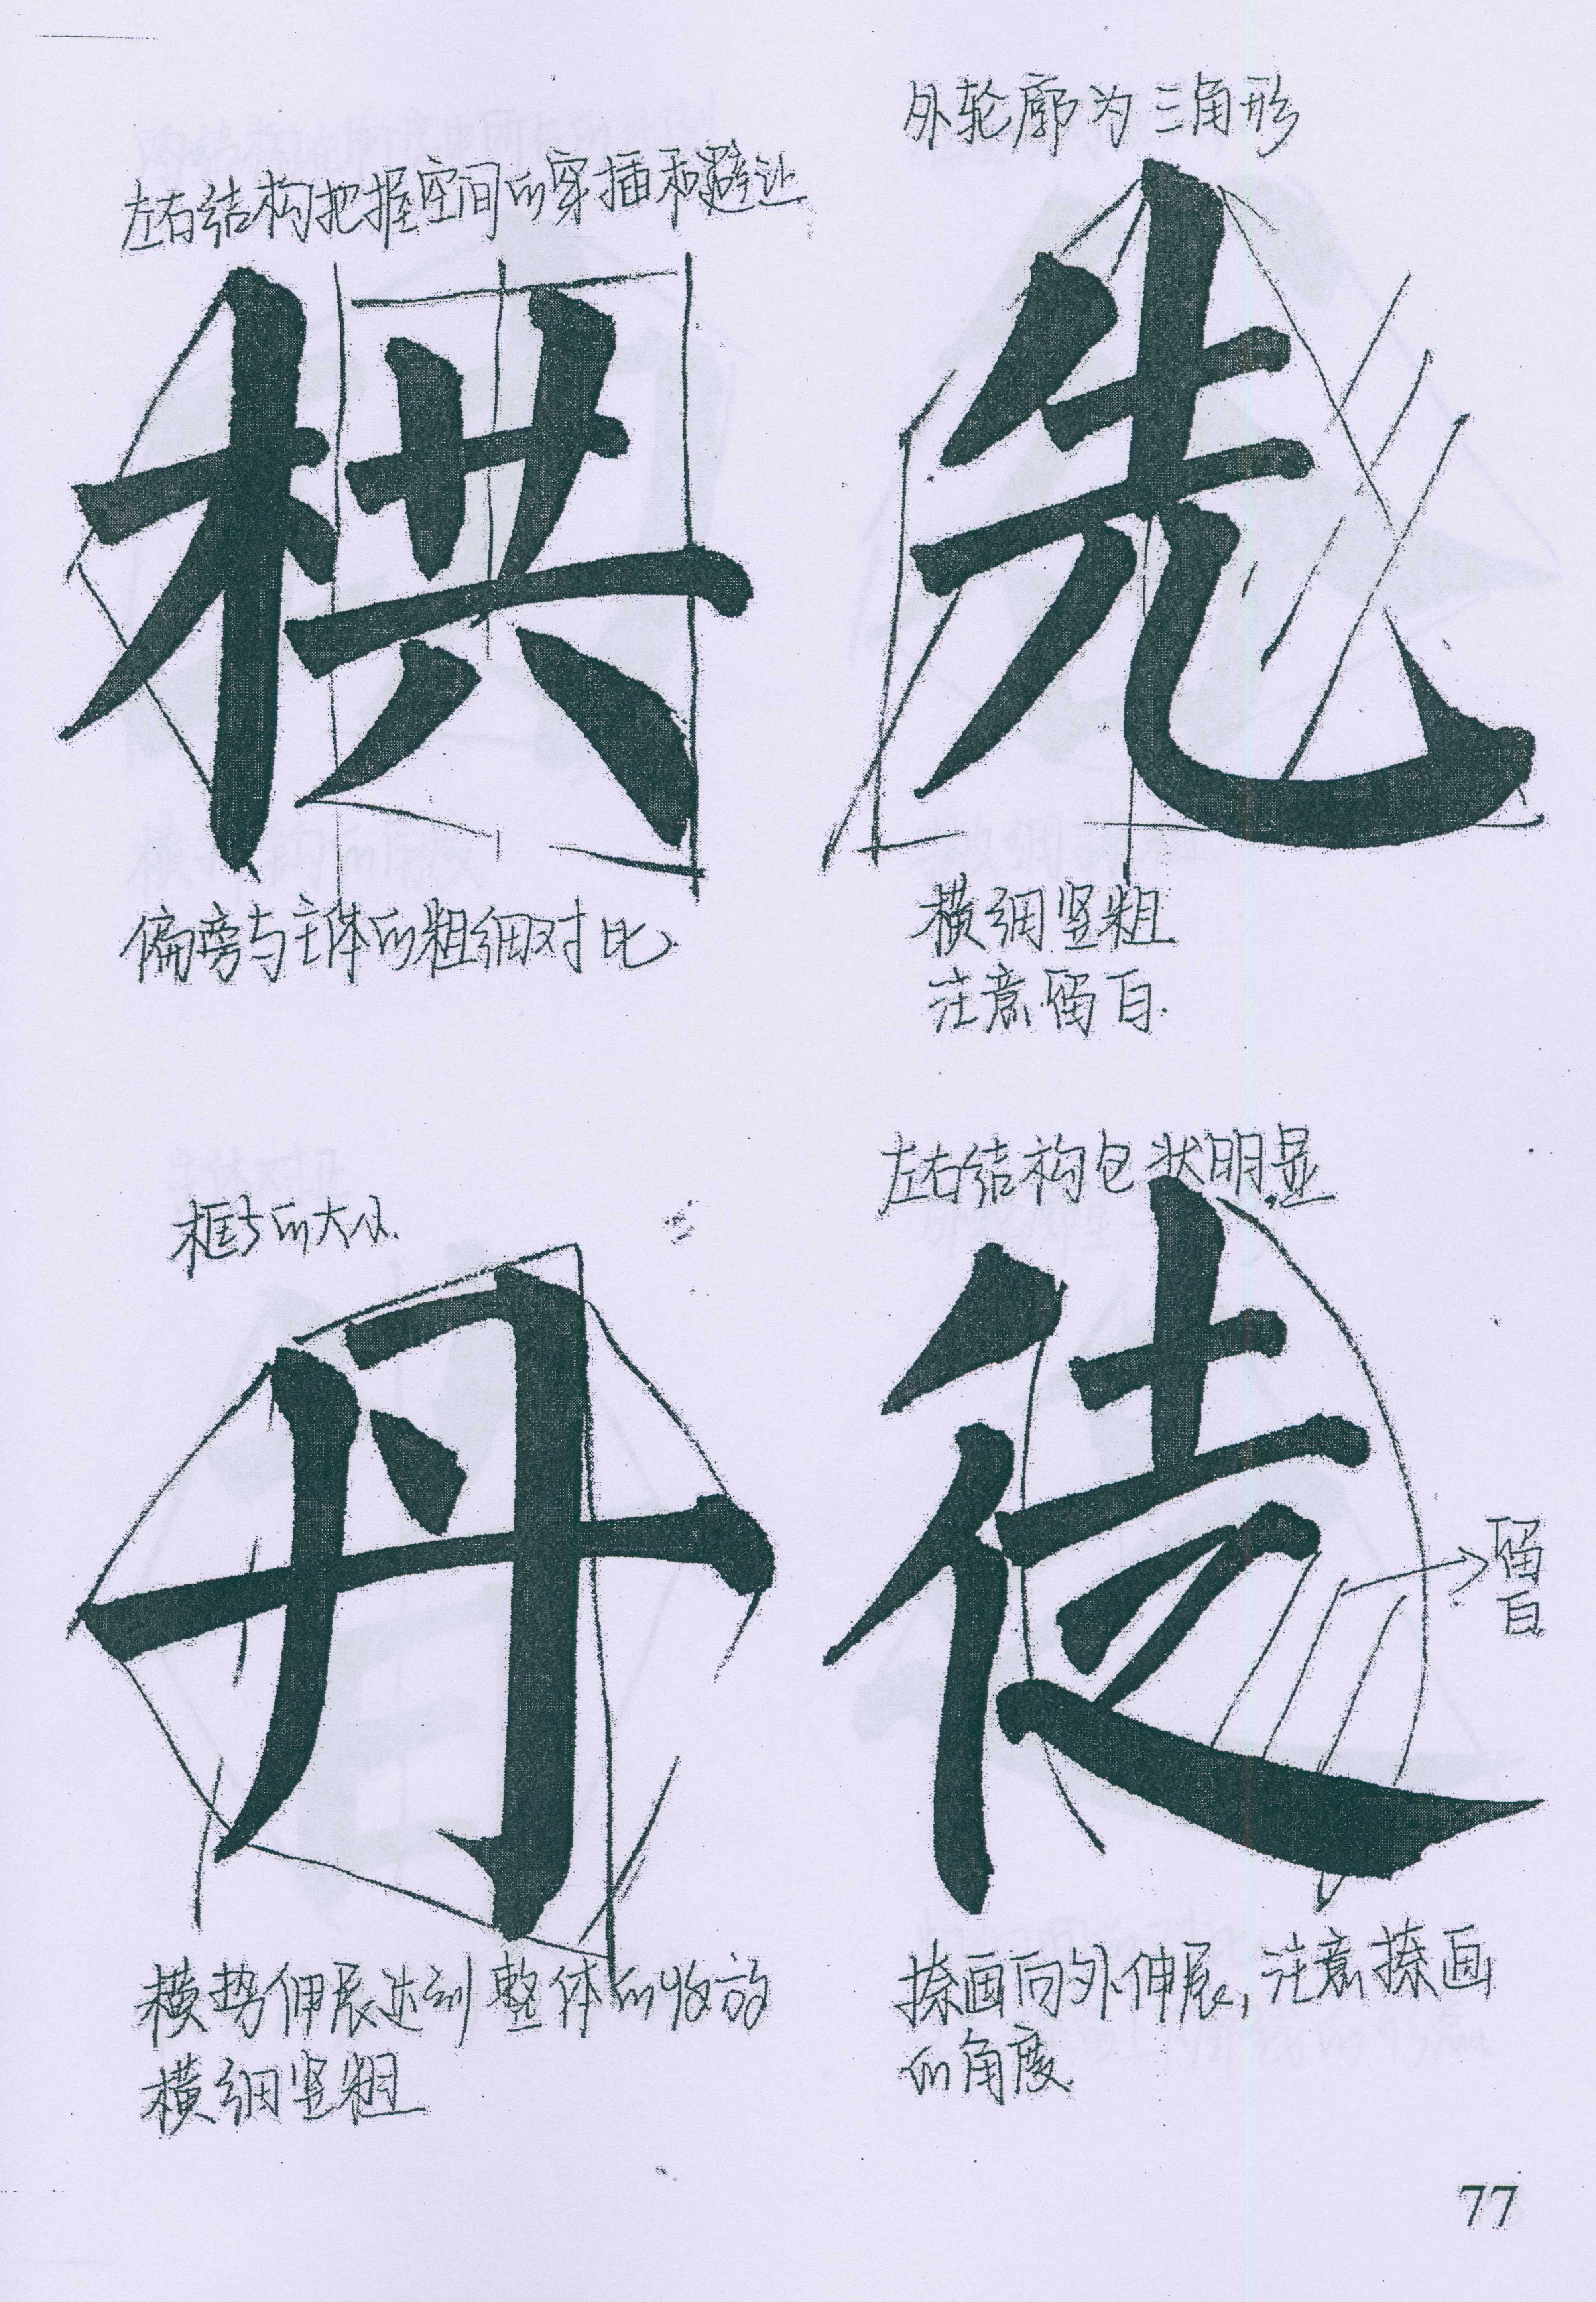 左右结构把握空间的穿插和避让
栱
偏旁与主体的粗细对比
外轮廓为三角形
先
横细竖粗
注意留白.
框与的大小.
丹
横势伸展达到整体的收放
横细竖粗
左右结构包状明显
徒
留白
捺画向外伸展,注意捺画
的角度
77